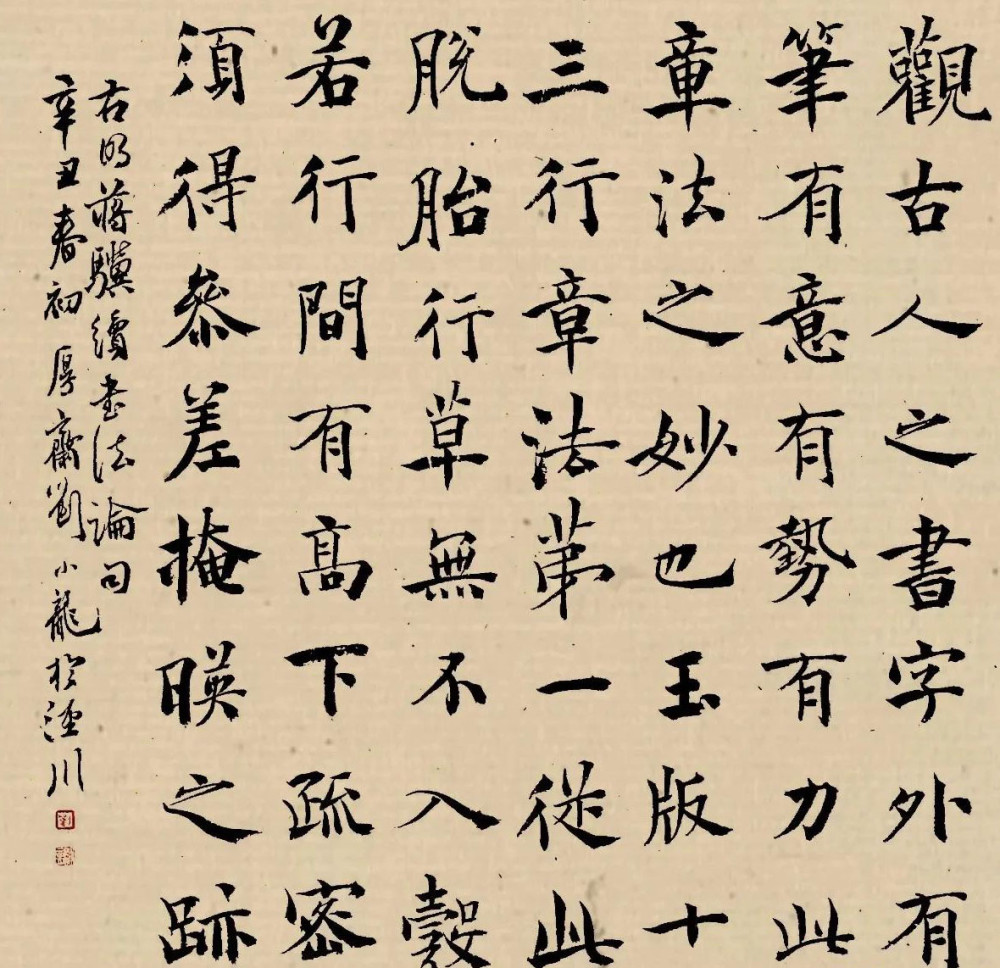 觀古人之書字外有
筆有意有勢有力此
章法之妙也玉版十
三行章法第一從此
脫胎行草無不入彀
若行間有高下疏密
須得參差掩映之跡
右明蔣驥續書法論句
辛丑春初厚齋劉小龍於涇川